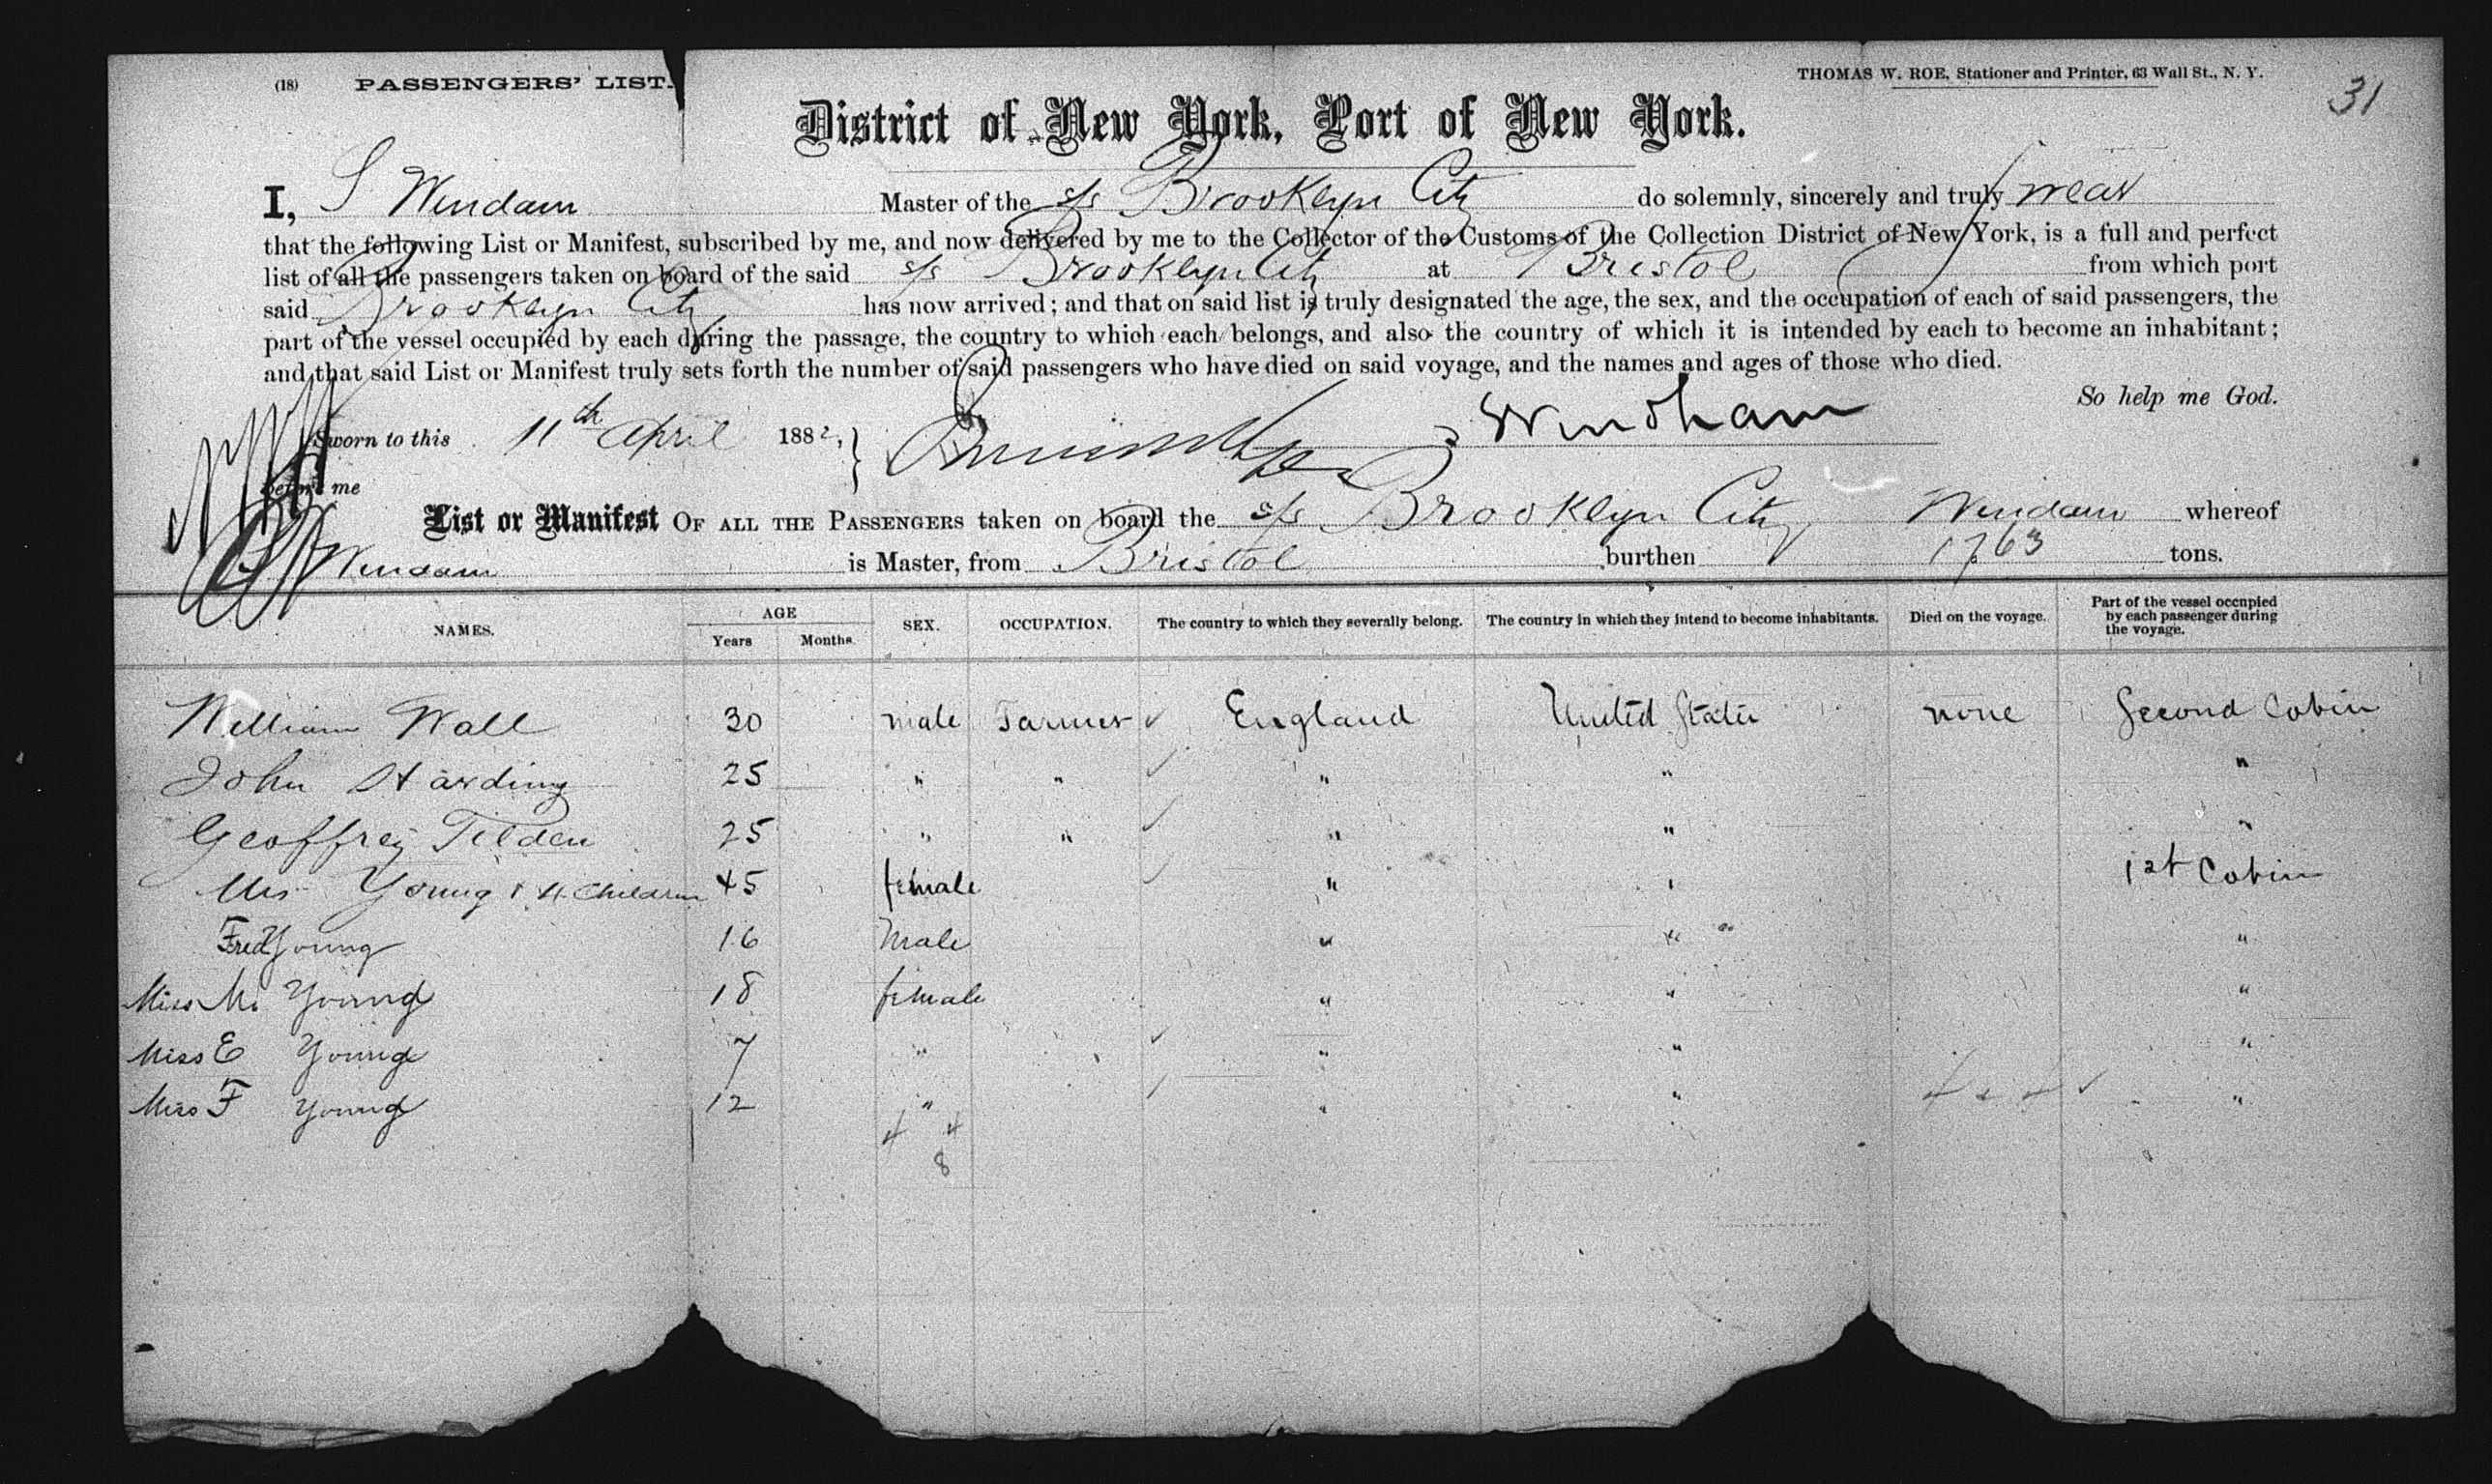 (18) PASSENGERS' LIST. THOMAS W. ROE, Stationer and Printer, 63 Wall St., N. Y.
31
District of New York, Port of New York.
I, S Windam Master of the s/s Brooklyn City do solemnly, sincerely and truly Swear
that the following List or Manifest, subscribed by me, and now delivered by me to the Collector of the Customs of the Collection District of New York, is a full and perfect
list of all the passengers taken on board of the said s/s Brooklyn City at Bristol from which port
said Brooklyn City has now arrived; and that on said list is truly designated the age, the sex, and the occupation of each of said passengers, the
part of the vessel occupied by each during the passage, the country to which each belongs, and also the country of which it is intended by each to become an inhabitant;
and that said List or Manifest truly sets forth the number of said passengers who have died on said voyage, and the names and ages of those who died.
So help me God.
Sworn to this 11th April 1882, Windham
before me
List or Manifest OF ALL THE PASSENGERS taken on board the s/s Brooklyn City, Windam whereof
S Windam is Master, from Bristol burthen 1763 tons.
NAMES. AGE Years Months SEX. OCCUPATION. The country to which they severally belong. The country in which they intend to become inhabitants. Died on the voyage. Part of the vessel occupied by each passenger during the voyage.
William Wall 30 male Farmer ✓ England United States none Second Cabin
John Harding 25 " " ✓ " " "
Geoffrey Tilden 25 " " ✓ " " "
Mrs Young & 4 Children 45 female ✓ " " 1st Cabin
Fred Young 16 Male " " "
Miss M. Young 18 female " " "
Miss E Young 7 " ✓ " " "
Miss F Young 12 " ✓ " " "
4 4
8